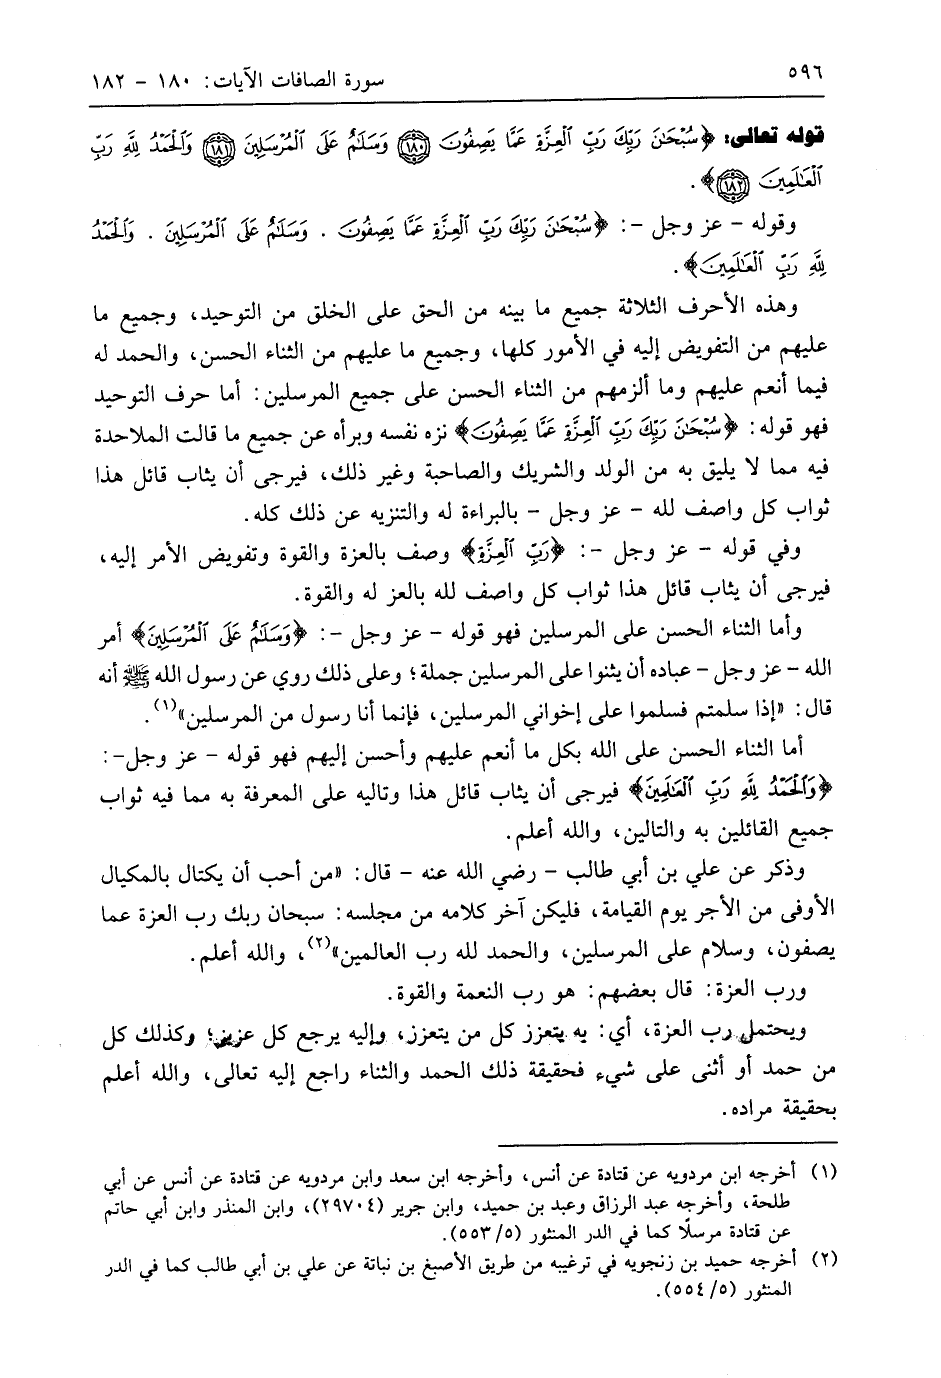 ٥٩٦
سورة الصافات الآيات: ١٨٠ - ١٨٢
قوله تعالى: ﴿سُبْحَٰنَ رَبِّكَ رَبِّ ٱلْعِزَّةِ عَمَّا يَصِفُونَ ١٨٠ وَسَلَٰمٌ عَلَى ٱلْمُرْسَلِينَ ١٨١ وَٱلْحَمْدُ لِلَّهِ رَبِّ
ٱلْعَٰلَمِينَ ١٨٢﴾.
وقوله - عز وجل -: ﴿سُبْحَٰنَ رَبِّكَ رَبِّ ٱلْعِزَّةِ عَمَّا يَصِفُونَ . وَسَلَٰمٌ عَلَى ٱلْمُرْسَلِينَ . وَٱلْحَمْدُ
لِلَّهِ رَبِّ ٱلْعَٰلَمِينَ﴾.
وهذه الأحرف الثلاثة جميع ما بينه من الحق على الخلق من التوحيد، وجميع ما
عليهم من التفويض إليه في الأمور كلها، وجميع ما عليهم من الثناء الحسن، والحمد له
فيما أنعم عليهم وما ألزمهم من الثناء الحسن على جميع المرسلين: أما حرف التوحيد
فهو قوله: ﴿سُبْحَٰنَ رَبِّكَ رَبِّ ٱلْعِزَّةِ عَمَّا يَصِفُونَ﴾ نزه نفسه وبرأه عن جميع ما قالت الملاحدة
فيه مما لا يليق به من الولد والشريك والصاحبة وغير ذلك، فيرجى أن يثاب قائل هذا
ثواب كل واصف لله - عز وجل - بالبراءة له والتنزيه عن ذلك كله.
وفي قوله - عز وجل -: ﴿رَبِّ ٱلْعِزَّةِ﴾ وصف بالعزة والقوة وتفويض الأمر إليه،
فيرجى أن يثاب قائل هذا ثواب كل واصف لله بالعز له والقوة.
وأما الثناء الحسن على المرسلين فهو قوله - عز وجل -: ﴿وَسَلَٰمٌ عَلَى ٱلْمُرْسَلِينَ﴾ أمر
الله - عز وجل - عباده أن يثنوا على المرسلين جملة؛ وعلى ذلك روي عن رسول الله ﷺ أنه
قال: «إذا سلمتم فسلموا على إخواني المرسلين، فإنما أنا رسول من المرسلين»(١).
أما الثناء الحسن على الله بكل ما أنعم عليهم وأحسن إليهم فهو قوله - عز وجل-:
﴿وَٱلْحَمْدُ لِلَّهِ رَبِّ ٱلْعَٰلَمِينَ﴾ فيرجى أن يثاب قائل هذا وتاليه على المعرفة به مما فيه ثواب
جميع القائلين به والتالين، والله أعلم.
وذكر عن علي بن أبي طالب - رضي الله عنه - قال: «من أحب أن يكتال بالمكيال
الأوفى من الأجر يوم القيامة، فليكن آخر كلامه من مجلسه: سبحان ربك رب العزة عما
يصفون، وسلام على المرسلين، والحمد لله رب العالمين»(٢)، والله أعلم.
ورب العزة: قال بعضهم: هو رب النعمة والقوة.
ويحتمل رب العزة، أي: به يتعزز كل من يتعزز، وإليه يرجع كل عزيز؛ وكذلك كل
من حمد أو أثنى على شيء فحقيقة ذلك الحمد والثناء راجع إليه تعالى، والله أعلم
بحقيقة مراده.
(١) أخرجه ابن مردويه عن قتادة عن أنس، وأخرجه ابن سعد وابن مردويه عن قتادة عن أنس عن أبي
طلحة، وأخرجه عبد الرزاق وعبد بن حميد، وابن جرير (٢٩٧٠٤)، وابن المنذر وابن أبي حاتم
عن قتادة مرسلًا كما في الدر المنثور (٥/ ٥٥٣).
(٢) أخرجه حميد بن زنجويه في ترغيبه من طريق الأصبغ بن نباتة عن علي بن أبي طالب كما في الدر
المنثور (٥/ ٥٥٤).